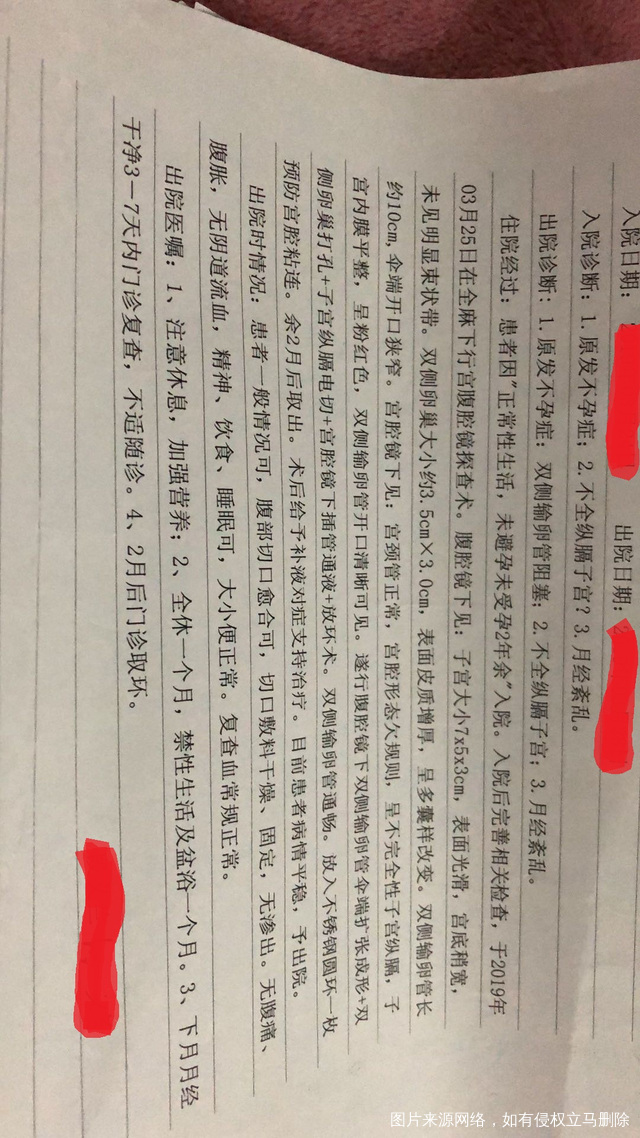 入院日期：
出院日期：
入院诊断：1.原发不孕症；2.不全纵膈子宫？3.月经紊乱。
出院诊断：1.原发不孕症：双侧输卵管阻塞；2.不全纵膈子宫；3.月经紊乱。
住院经过：患者因"正常性生活，未避孕未受孕2年余"入院。入院后完善相关检查，于2019年
03月25日在全麻下行宫腹腔镜探查术。腹腔镜下见：子宫大小7x5x3cm，表面光滑，宫底稍宽，
未见明显束状带。双侧卵巢大小约3.5cm×3.0cm，表面皮质增厚，呈多囊样改变。双侧输卵管长
约10cm,伞端开口狭窄。宫腔镜下见：宫颈管正常，宫腔形态欠规则，呈不完全性子宫纵膈，子
宫内膜平整，呈粉红色，双侧输卵管开口清晰可见。遂行腹腔镜下双侧输卵管伞端扩张成形+双
侧卵巢打孔+子宫纵膈电切+宫腔镜下插管通液+放环术。双侧输卵管通畅。放入不锈钢圆环一枚
预防宫腔粘连。余2月后取出。术后给予补液对症支持治疗。目前患者病情平稳，予出院。
出院时情况：患者一般情况可，腹部切口愈合可，切口敷料干燥、固定，无渗出。无腹痛、
腹胀，无阴道流血，精神、饮食、睡眠可，大小便正常。复查血常规正常。
出院医嘱：1、注意休息，加强营养；2、全休一个月，禁性生活及盆浴一个月。3、下月月经
干净3－7天内门诊复查，不适随诊。4、2月后门诊取环。
图片来源网络，如有侵权立马删除